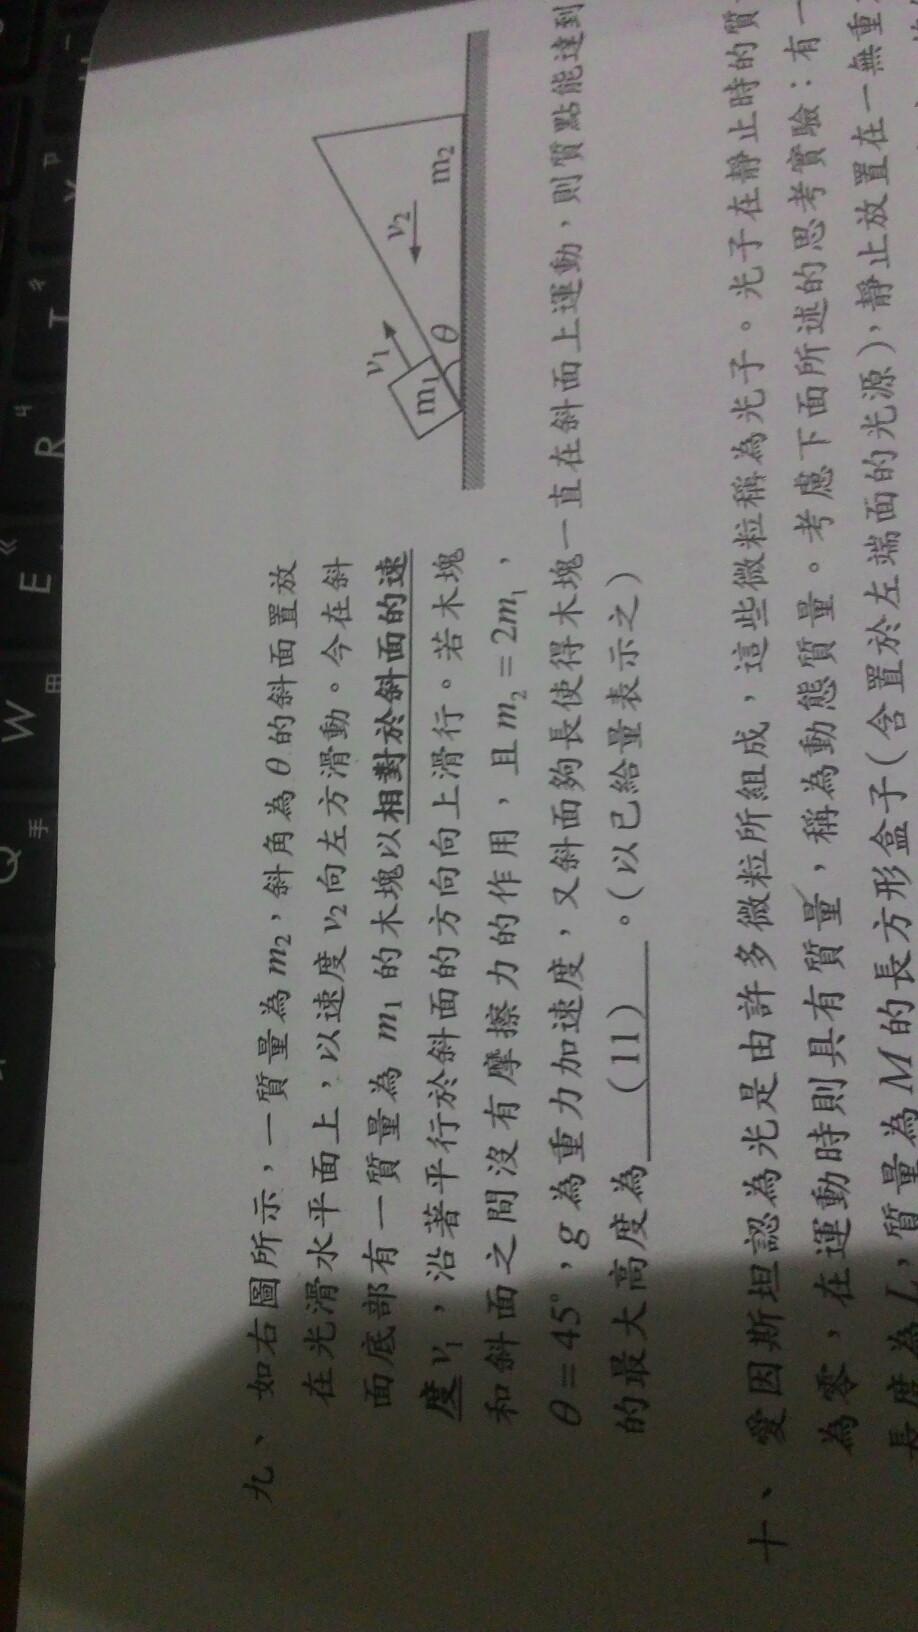 九、如右圖所示，一質量為 m₂，斜角為 θ 的斜面置放
在光滑水平面上，以速度 v₂ 向左方滑動。今在斜
面底部有一質量為 m₁ 的木塊以相對於斜面的速
度 v₁，沿著平行於斜面的方向向上滑行。若木塊
和斜面之間沒有摩擦力的作用，且 m₂ = 2m₁，
θ = 45°，g 為重力加速度，又斜面夠長使得木塊一直在斜面上運動，則質點能達到
的最大高度為 (11) 。（以已給量表示之）
v₁
m₁
θ
v₂
m₂
十、愛因斯坦認為光是由許多微粒所組成，這些微粒稱為光子。光子在靜止時的質
為零，在運動時則具有質量，稱為動態質量。考慮下面所述的思考實驗：有一
長度為 L，質量為 M 的長方形盒子（含置於左端面的光源），靜止放置在一無重
Q
W
E
R
T
Y
手
田